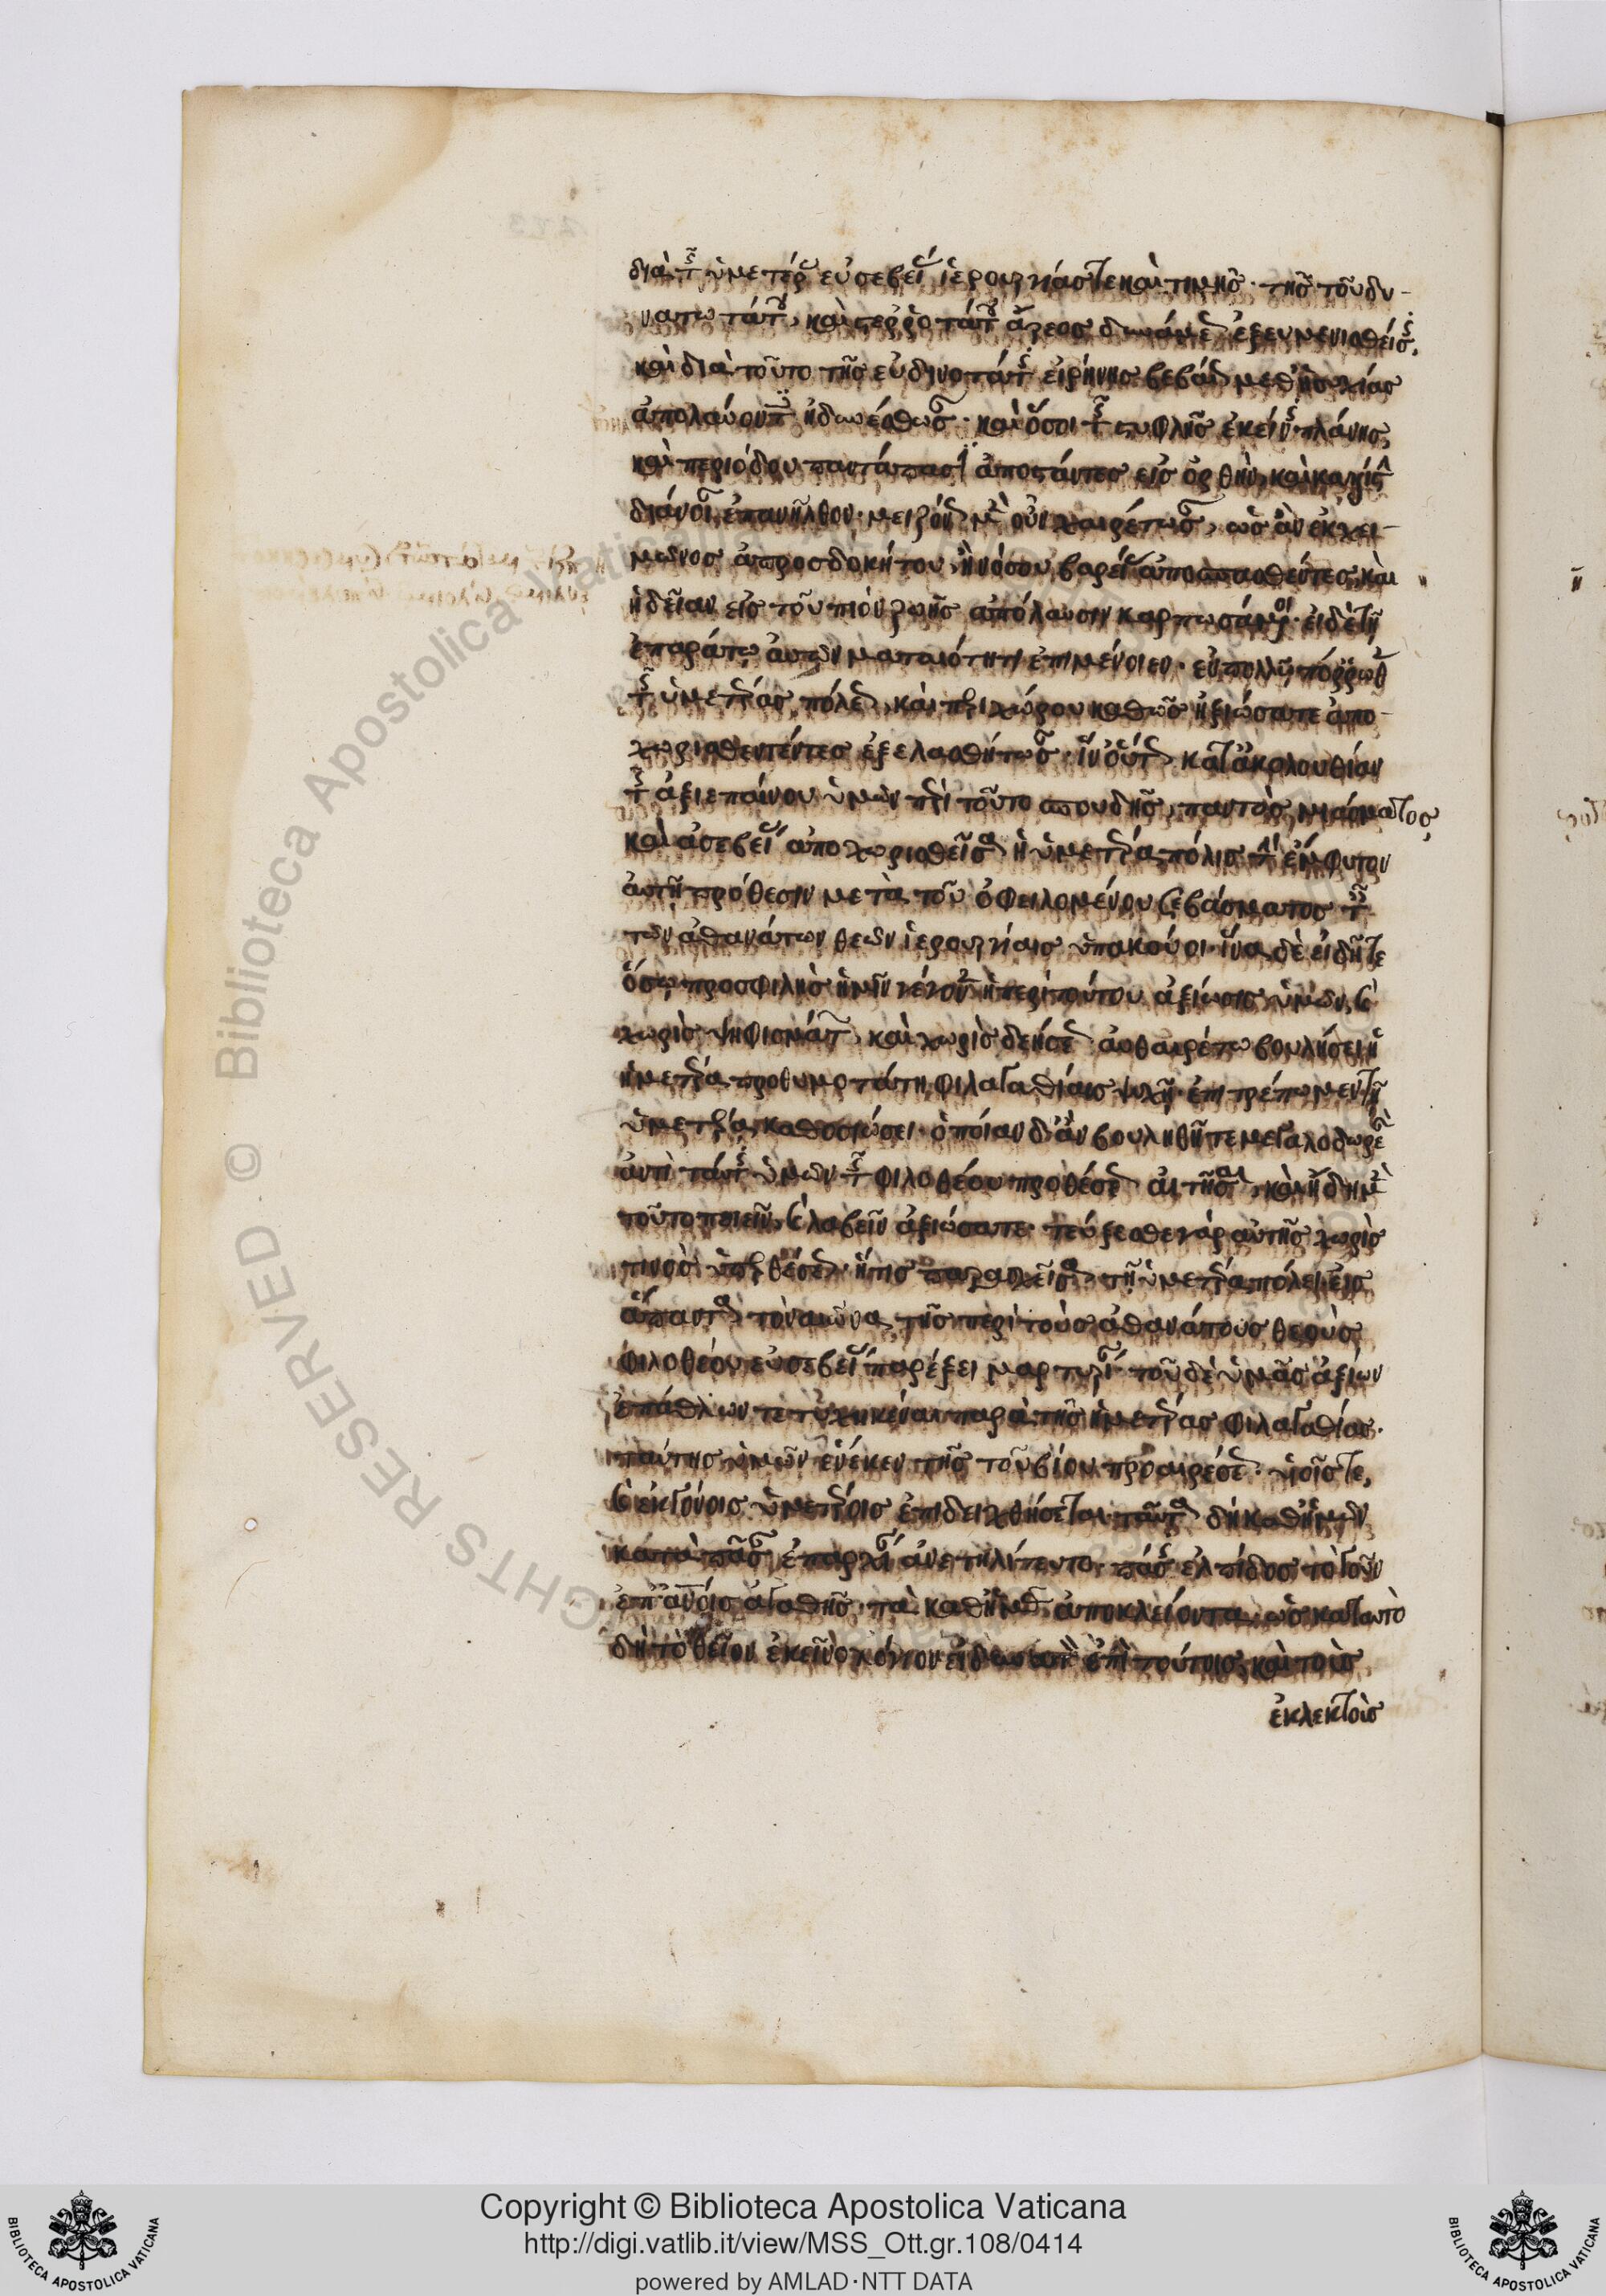 διὰ τῆς ὑμετέρας εὐσεβείας ἱερουργίας τε καὶ τιμῆς· τῆς τοῦ δυ-
νατωτάτου καὶ στερροτάτου ἄρεος δυνάμεως ἐξευμενισθείσης,
καὶ διὰ τοῦτο τῆς εὐδινοτάτης εἰρήνης βεβαίως μεθ ἡσυχίας
ἀπολαύοντες ἡδυνέσθωσαν· καὶ ὅσοι τῆς τυφλῆς ἐκείνης πλάνης
καὶ περιόδου παντάπασι ἀποστάντες εἰς ὀρθὴν καὶ καλίστην
διάνοιαν ἐπανῆλθον· μειζόνως μὲν οὖν χαιρέτωσαν, ὡς ἂν ἐκ χει-
μῶνος ἀπροσδοκήτου ἢ νόσου βαρείας ἀποσπασθέντες καὶ
ἡδεῖαν εἰς τοὐπιὸν ζωῆς ἀπόλαυσιν καρπωσάμενοι· εἰ δὲ τῇ
ἐπαράτῳ αὐτῶν ματαιότητι ἐπιμένοιεν· ἐν πολλῷ πόρρωθεν
τῆς ὑμετέρας πόλεως καὶ περιχώρου καθὼς ἠξιώσατε ἀπο-
χωρισθεντέντες ἐξελασθήτωσαν· ἵν οὕτως κατ ἀκολουθίαν
τῆς ἀξιεπαίνου ὑμῶν περὶ τοῦτο σπουδῆς, παντὸς μιάσματος
καὶ ἀσεβείας ἀποχωρισθεῖσα ἡ ὑμετέρα πόλις τὴν ἔμφυτον
αὐτῇ πρόθεσιν μετὰ τοῦ ὀφειλομένου σεβάσματος ταῖς
τῶν ἀθανάτων θεῶν ἱερουργίαις ὑπακούοι· ἵνα δὲ εἰδῆτε
ὅσῳ προσφιλὴς ἡμῖν γέγονεν ἡ περὶ τούτου ἀξίωσις ὑμῶν, καὶ
χωρὶς ψηφισμάτων καὶ χωρὶς δεήσεως αὐθαιρέτῳ βουλήσει ἡ
ἡμετέρα προθυμοτάτη φιλαγαθίας ψυχή· ἐπιτρέπωμεν τῇ
ὑμετέρᾳ καθοσιώσει· ὁποίαν δ ἂν βουληθῆτε μεγαλοδωρεὰν
ἀντὶ ταύτης ὑμῶν τῆς φιλοθέου προθέσεως αἰτῆσαι, καὶ ἤδη μὲν
τοῦτο ποιεῖν καὶ λαβεῖν ἀξιώσατε· τεύξεσθε γὰρ αὐτῆς χωρὶς
τινὸς ὑπερθέσεως· ἥτις παρασχεῖσα τῇ ὑμετέρᾳ πόλει εἰς
ἅπαντα τὸν αἰῶνα τῆς περὶ τοὺς ἀθανάτους θεοὺς
φιλοθέου εὐσεβείας παρέξει μαρτυρίαν τοῦ δὲ ὑμᾶς ἀξίων
ἐπάθλων τετυχηκέναι παρὰ τῆς ἡμετέρας φιλαγαθίας·
ταύτης ὑμῶν ἕνεκεν τῆς τοῦ βίου προαιρέσεως· υἱοῖς τε,
καὶ ἐκγόνοις ὑμετέροις ἐπιδειχθήσεται· ταῦτα δὴ καθ ἡμῶν
κατὰ πᾶσαν ἐπαρχίαν ἀνετηλίτευτο· πάσης ἐλπίδος τὸ γοῦν
ἐπ ἀνοις ἀγαθῆς· τὰ καθ ἡμᾶς ἀποκλείοντα· ὡς κατ αὐτὸ
δὴ τὸ θεῖον ἐκεῖνο λόγιον ἐπὶ τούτοις καὶ τοὺς
ἐκλεκτοὺς